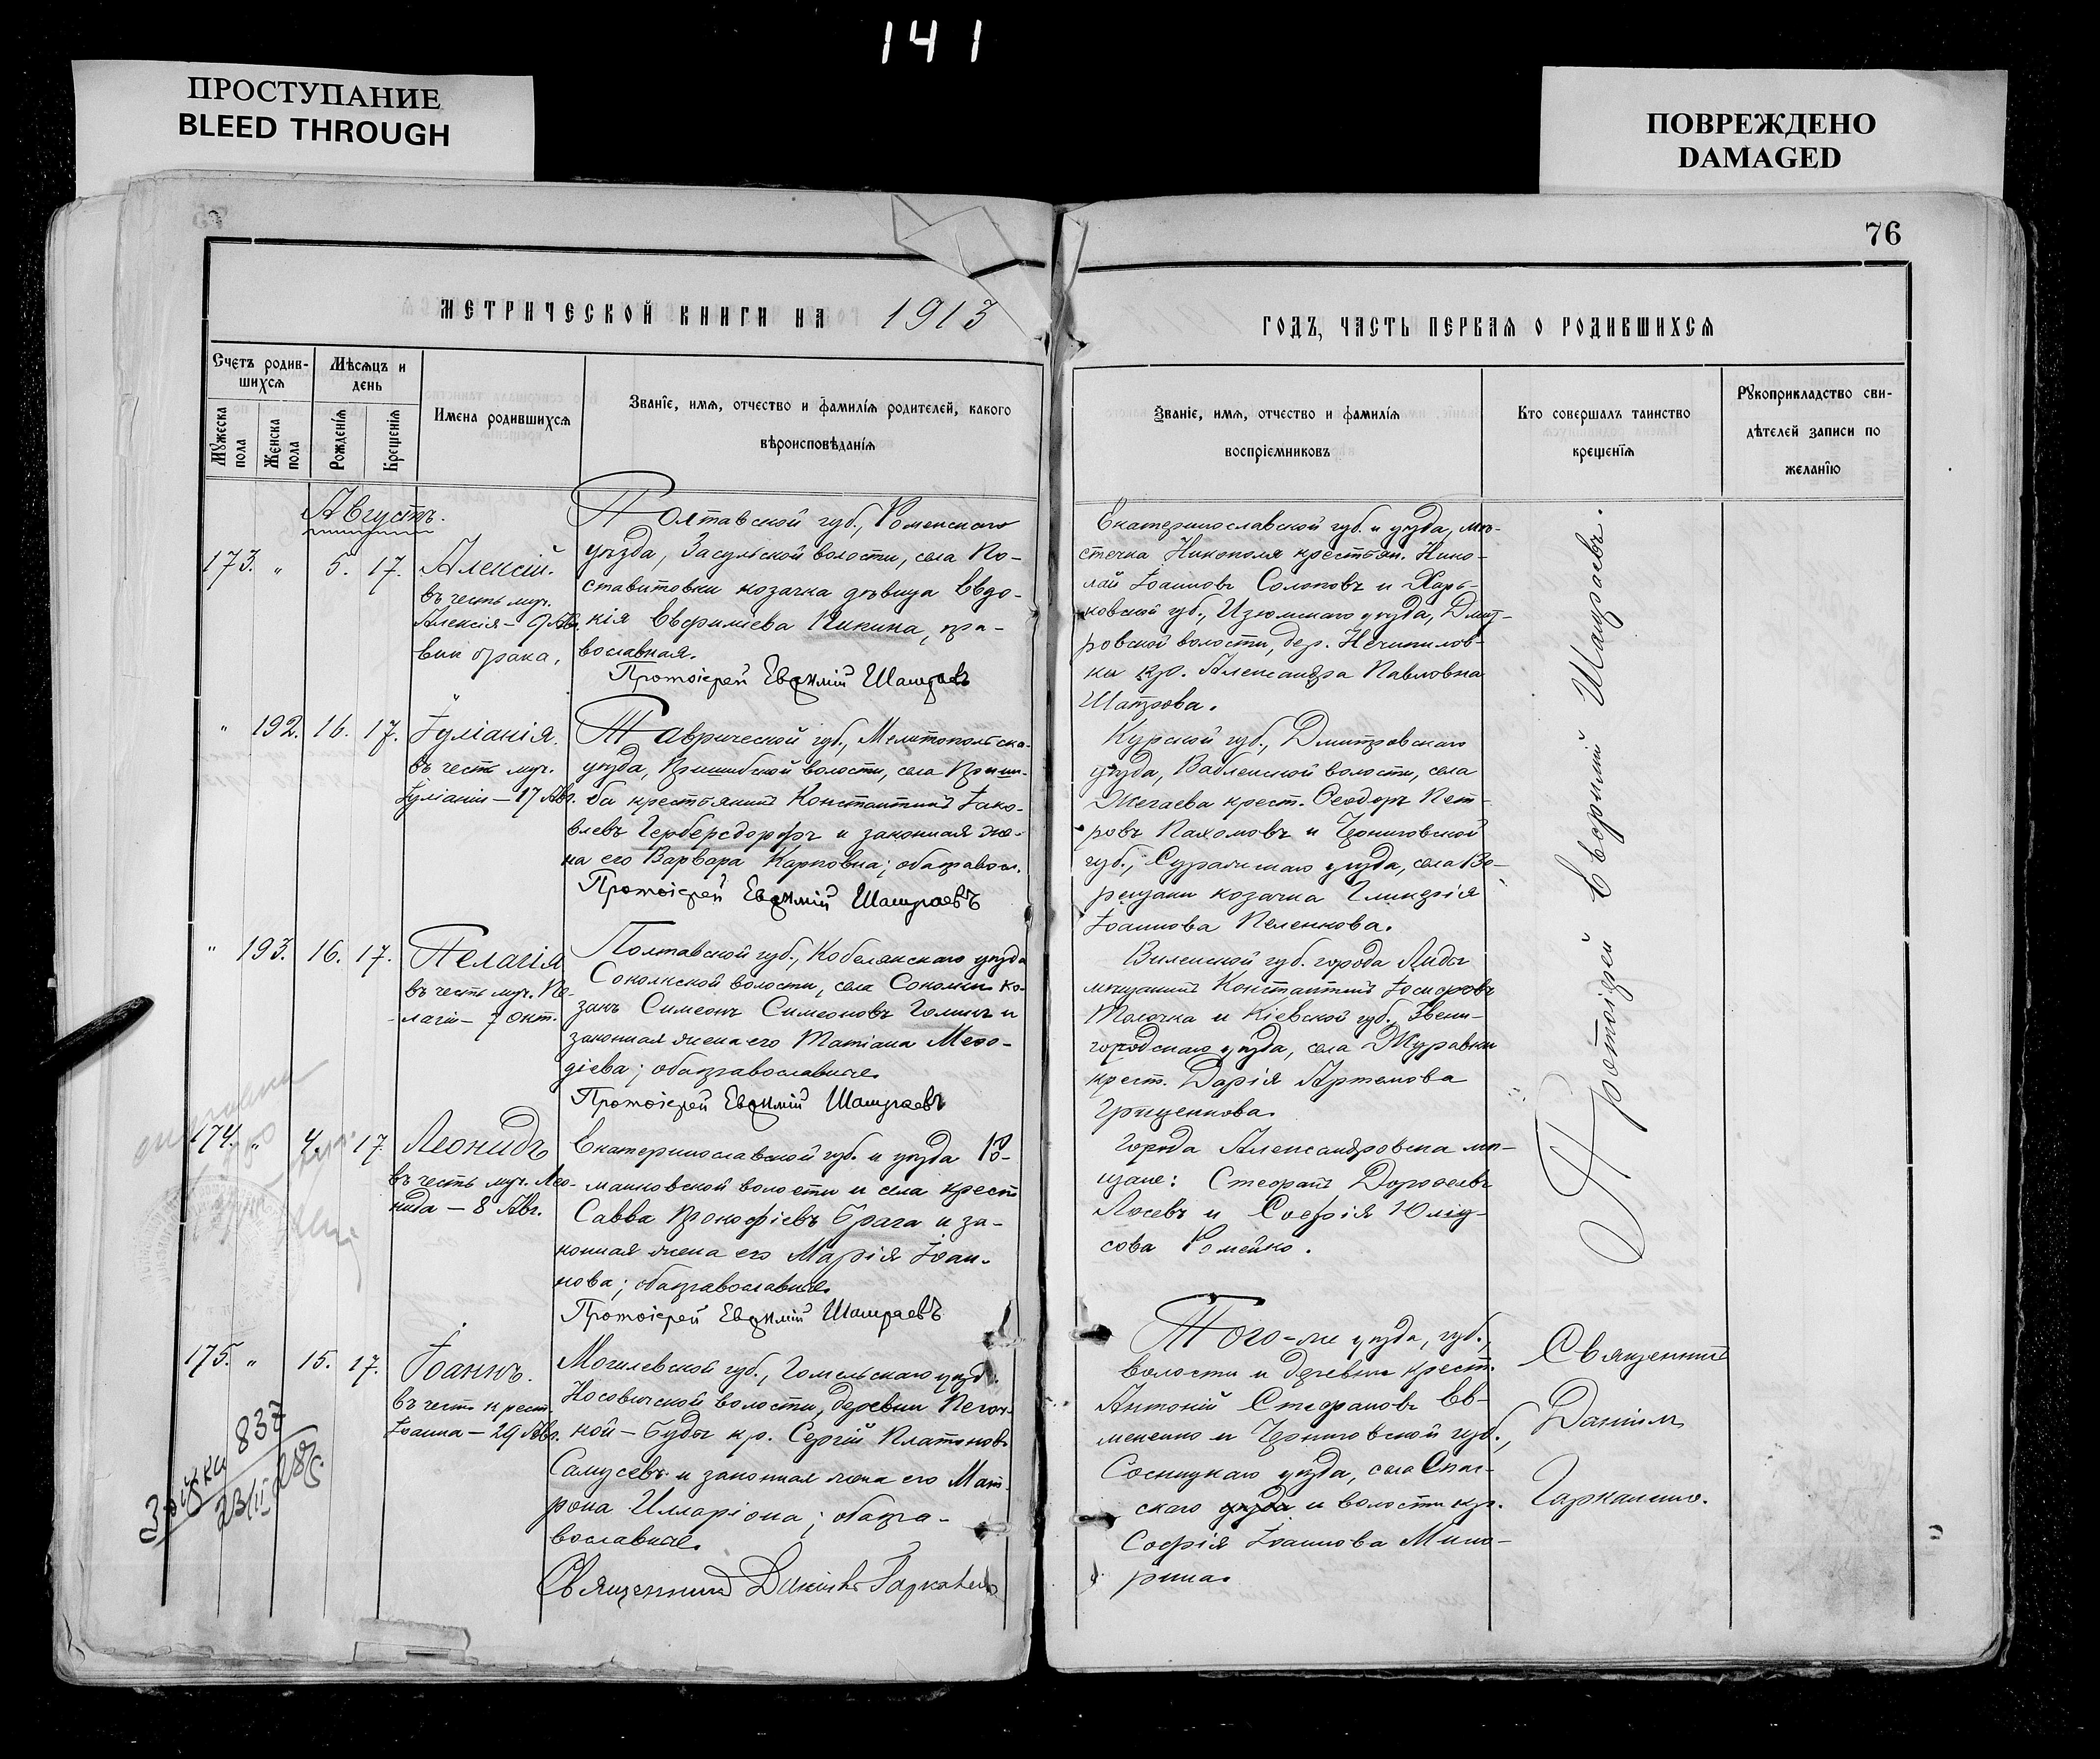 141
ПРОСТУПАНИЕ
BLEED THROUGH
ПОВРЕЖДЕНО
DAMAGED
76
МЕТРИЧЕСКОЙ КНИГИ НА 1913
ГОДЪ, ЧАСТЬ ПЕРВАѦ О РОДИВШИХСѦ
Счетъ родив-
шихсѧ
Мужеска
пола
Женска
пола
Мѣсѧцъ и
день
Рожденїѧ
Крещенїѧ
Имена родившихсѧ
Званїе, имѧ, отчество и фамилїѧ родителей, какого
вѣроисповѣданїѧ
Званїе, имѧ, отчество и фамилїѧ
воспрїемниковъ
Кто совершалъ таинство
крещенїѧ
Рукоприкладство сви-
дѣтелей записи по
желанїю
Августъ.
173. " 5. 17. Алексій.
въ честь муч.
Алексія – 9 Авг.
внѣ брака.
Полтавской губ., Роменскаго
уѣзда, Засульской волости, села По-
ставитовки козачка дѣвица Евдо-
кія Евфиміева Кикина, пра-
вославная.
Протоіерей Евфимій Шашраевъ
Екатеринославской губ. и уѣзда, мѣ-
стечка Никополя крестьян. Нико-
лай Іоанновъ Солоповъ и Харь-
ковской губ., Изюмскаго уѣзда, Дмит-
ровской волости, дер. Нечипилов-
ки кр. Александра Павловна
Шатрова.
" 192. 16. 17. Іуліанія.
въ честь муч.
Іуліаніи – 17 Авг.
Таврической губ., Мелитопольска-
уѣзда, Пришибской волости, села Приши-
ба крестьянинъ Константинъ Іако-
влевъ Герберсдорфъ и законная же-
на его Варвара Карповна; оба правосл.
Протоіерей Евфимій Шашраевъ
Курской губ., Дмитровскаго
уѣзда, Вабленской волости, села
Жегаева крест. Ѳеодоръ Пет-
ровъ Пахомовъ и Черниговской
губ., Суражскаго уѣзда, села Во-
рещани козачка Гликерія
Іоаннова Пеленкова.
" 193. 16. 17. Пелагія
въ честь муч. Пе-
лагіи – 7 Окт.
Полтавской губ., Кобелякскаго уѣзда
Соколкской волости, села Соколки ко-
закъ Симеонъ Симеоновъ Голикъ и
законная жена его Татіана Меѳо-
діева; оба православные.
Протоіерей Евфимій Шашраевъ
Виленской губ. города Лиды
мѣщанинъ Константинъ Іосифовъ
Толочка и Кіевской губ., Звени-
городскаго уѣзда, села Журавки
крест. Дарія Артемова
Гриценкова.
174. " 4. 17. Леонидъ
въ честь муч. Лео-
нида – 8 Авг.
Екатеринославской губ. и уѣзда Ро-
манковской волости и села крест.
Савва Прокофіевъ Брага и за-
конная жена его Марія Іоан-
нова; оба православные.
Протоіерей Евфимій Шашраевъ
Города Александровска мѣ-
щане: Стефанъ Дороѳеевъ
Лосевъ и Софія Юліу-
сова Ромейко.
Протоіерей Евфимій Шашраевъ.
175. " 15. 17. Іоаннъ.
въ честь крест.
Іоанна – 29 Авг.
Могилевской губ., Гомельскаго уѣзд.
Носовичской волости, деревни Песоч-
ной – Буды кр. Сергій Платоновъ
Самусевъ и законная жена его Мат-
рона Илларіона; оба пра-
вославные.
Священникъ Даніилъ Гаркавенко
Того-же уѣзда, губ.,
волости и деревни крест.
Антоній Стефановъ Ев-
мененко и Черниговской губ.,
Сосницкаго уѣзда, села Спас-
скаго уѣзда и волости кр.
Софія Іоаннова Мино-
рина.
Священникъ
Даніилъ
Гаркавенко.
837
23/II